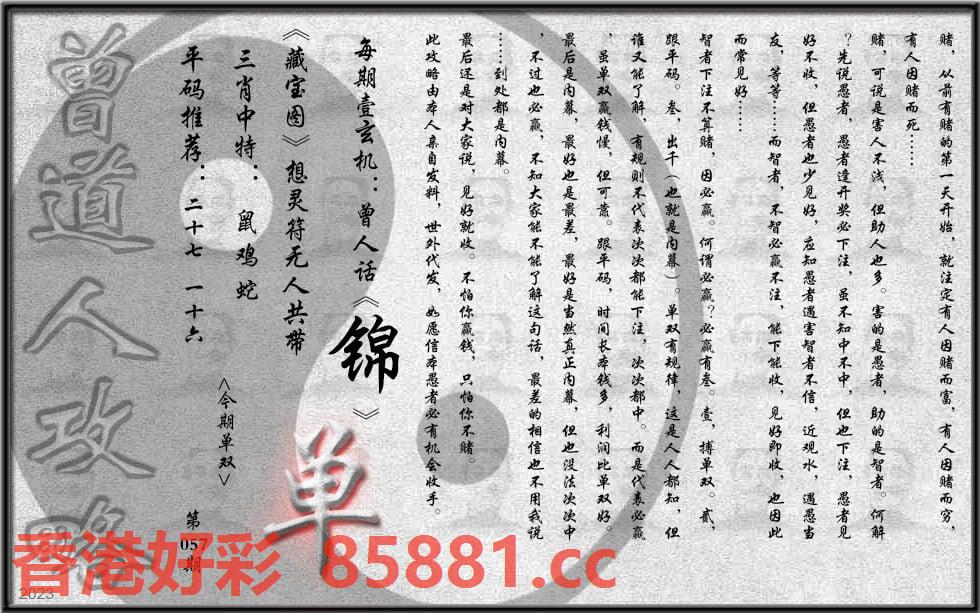 赌，从前有赌的第一天开始，就注定有人因赌而富，有人因赌而穷，
有人因赌而死……
赌，可说是害人不浅，但助人也多。害的是愚者，助的是智者。何解
？先说愚者，愚者逢开奖必下注，虽不知中不中，但也下注，愚者见
好不收，但愚者也少见好，应知愚者遇害智者不信，近观水，遇愚当
友，等等……而智者，不智必赢不注，能下能收，见好即收，也因此
而常见好……
智者下注不算赌，因必赢。何谓必赢？必赢有叁。壹，搏单双。贰，
跟平码。叁，出千（也就是内幕）。单双有规律，这是人人都知，但
谁又能了解，有规则不代表次次都能下注，次次都中。而是代表必赢
，虽单双赢钱慢，但可靠。跟平码，时间长本钱多，利润比单双好。
最后是内幕，最好也是最差，最好是当然真正内幕，但也没法次次中
，不过也必赢，不知大家能不能了解这句话，最差的相信也不用我说
……到处都是内幕。
最后还是对大家说，见好就收。不怕你赢钱，只怕你不赌。
此攻略由本人亲自发料，世外代发，如愿信本愚者必有机会收手。
每期壹玄机：曾人话《锦》
《藏宝图》想灵符无人共带
单
三肖中特：鼠鸡蛇
<今期单双>
平码推荐：二十七 一十六
第
057
期
曾道人攻略
香港好彩 85881.cc
2023